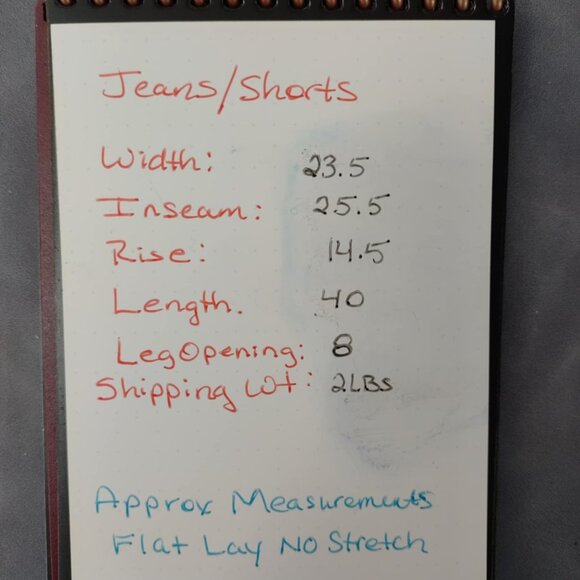 Jeans/Shorts
Width: 23.5
Inseam: 25.5
Rise: 14.5
Length. 40
Leg Opening: 8
Shipping Wt: 2LBs
Approx Measurements
Flat Lay No Stretch